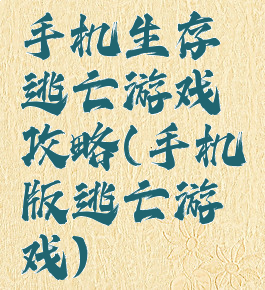 手机生存
逃亡游戏
攻略(手机
版逃亡游
戏)